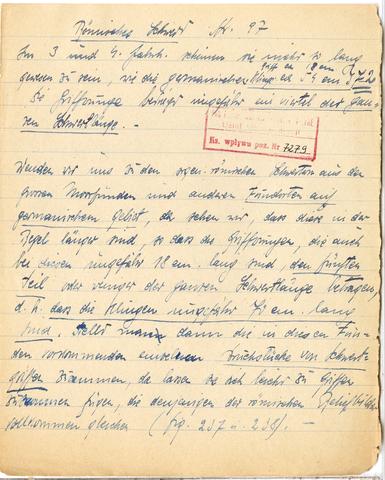 Römisches Schwert Nr. 97
Im 3 und 4. Jahrh. scheinen sie nicht so lang
Griff ca 18 cm
gewesen zu sein, wie die germanischen Klinge ca 54 cm
Die Grifflänge beträgt ungefähr ein viertel der gan-
zen Schwertlänge. —
Ks. wpływu poz. Nr 7279.
Wenden wir uns zu den römischen Schwertern aus den
grossen Moorfunden und anderen Fundorten auf
germanischem Gebiet, da sehen wir, dass diese in der
Regel länger sind, so dass die Grifflängen, die auch
bei diesen ungefähr 18 cm. lang sind, den fünften
Teil oder weniger der ganzen Schwertlänge betragen,
d. h. dass die Klingen ungefähr cm. lang
sind. Stellt man dann die in diesen Fun-
den vorkommenden einzelnen Bruchstücke von Schwert-
griffen zusammen, da lassen sie sich leicht zu Griffen
zusammen fügen, die denjenigen der römischen
vollkommen gleichen (fig. 237 u. 238). —